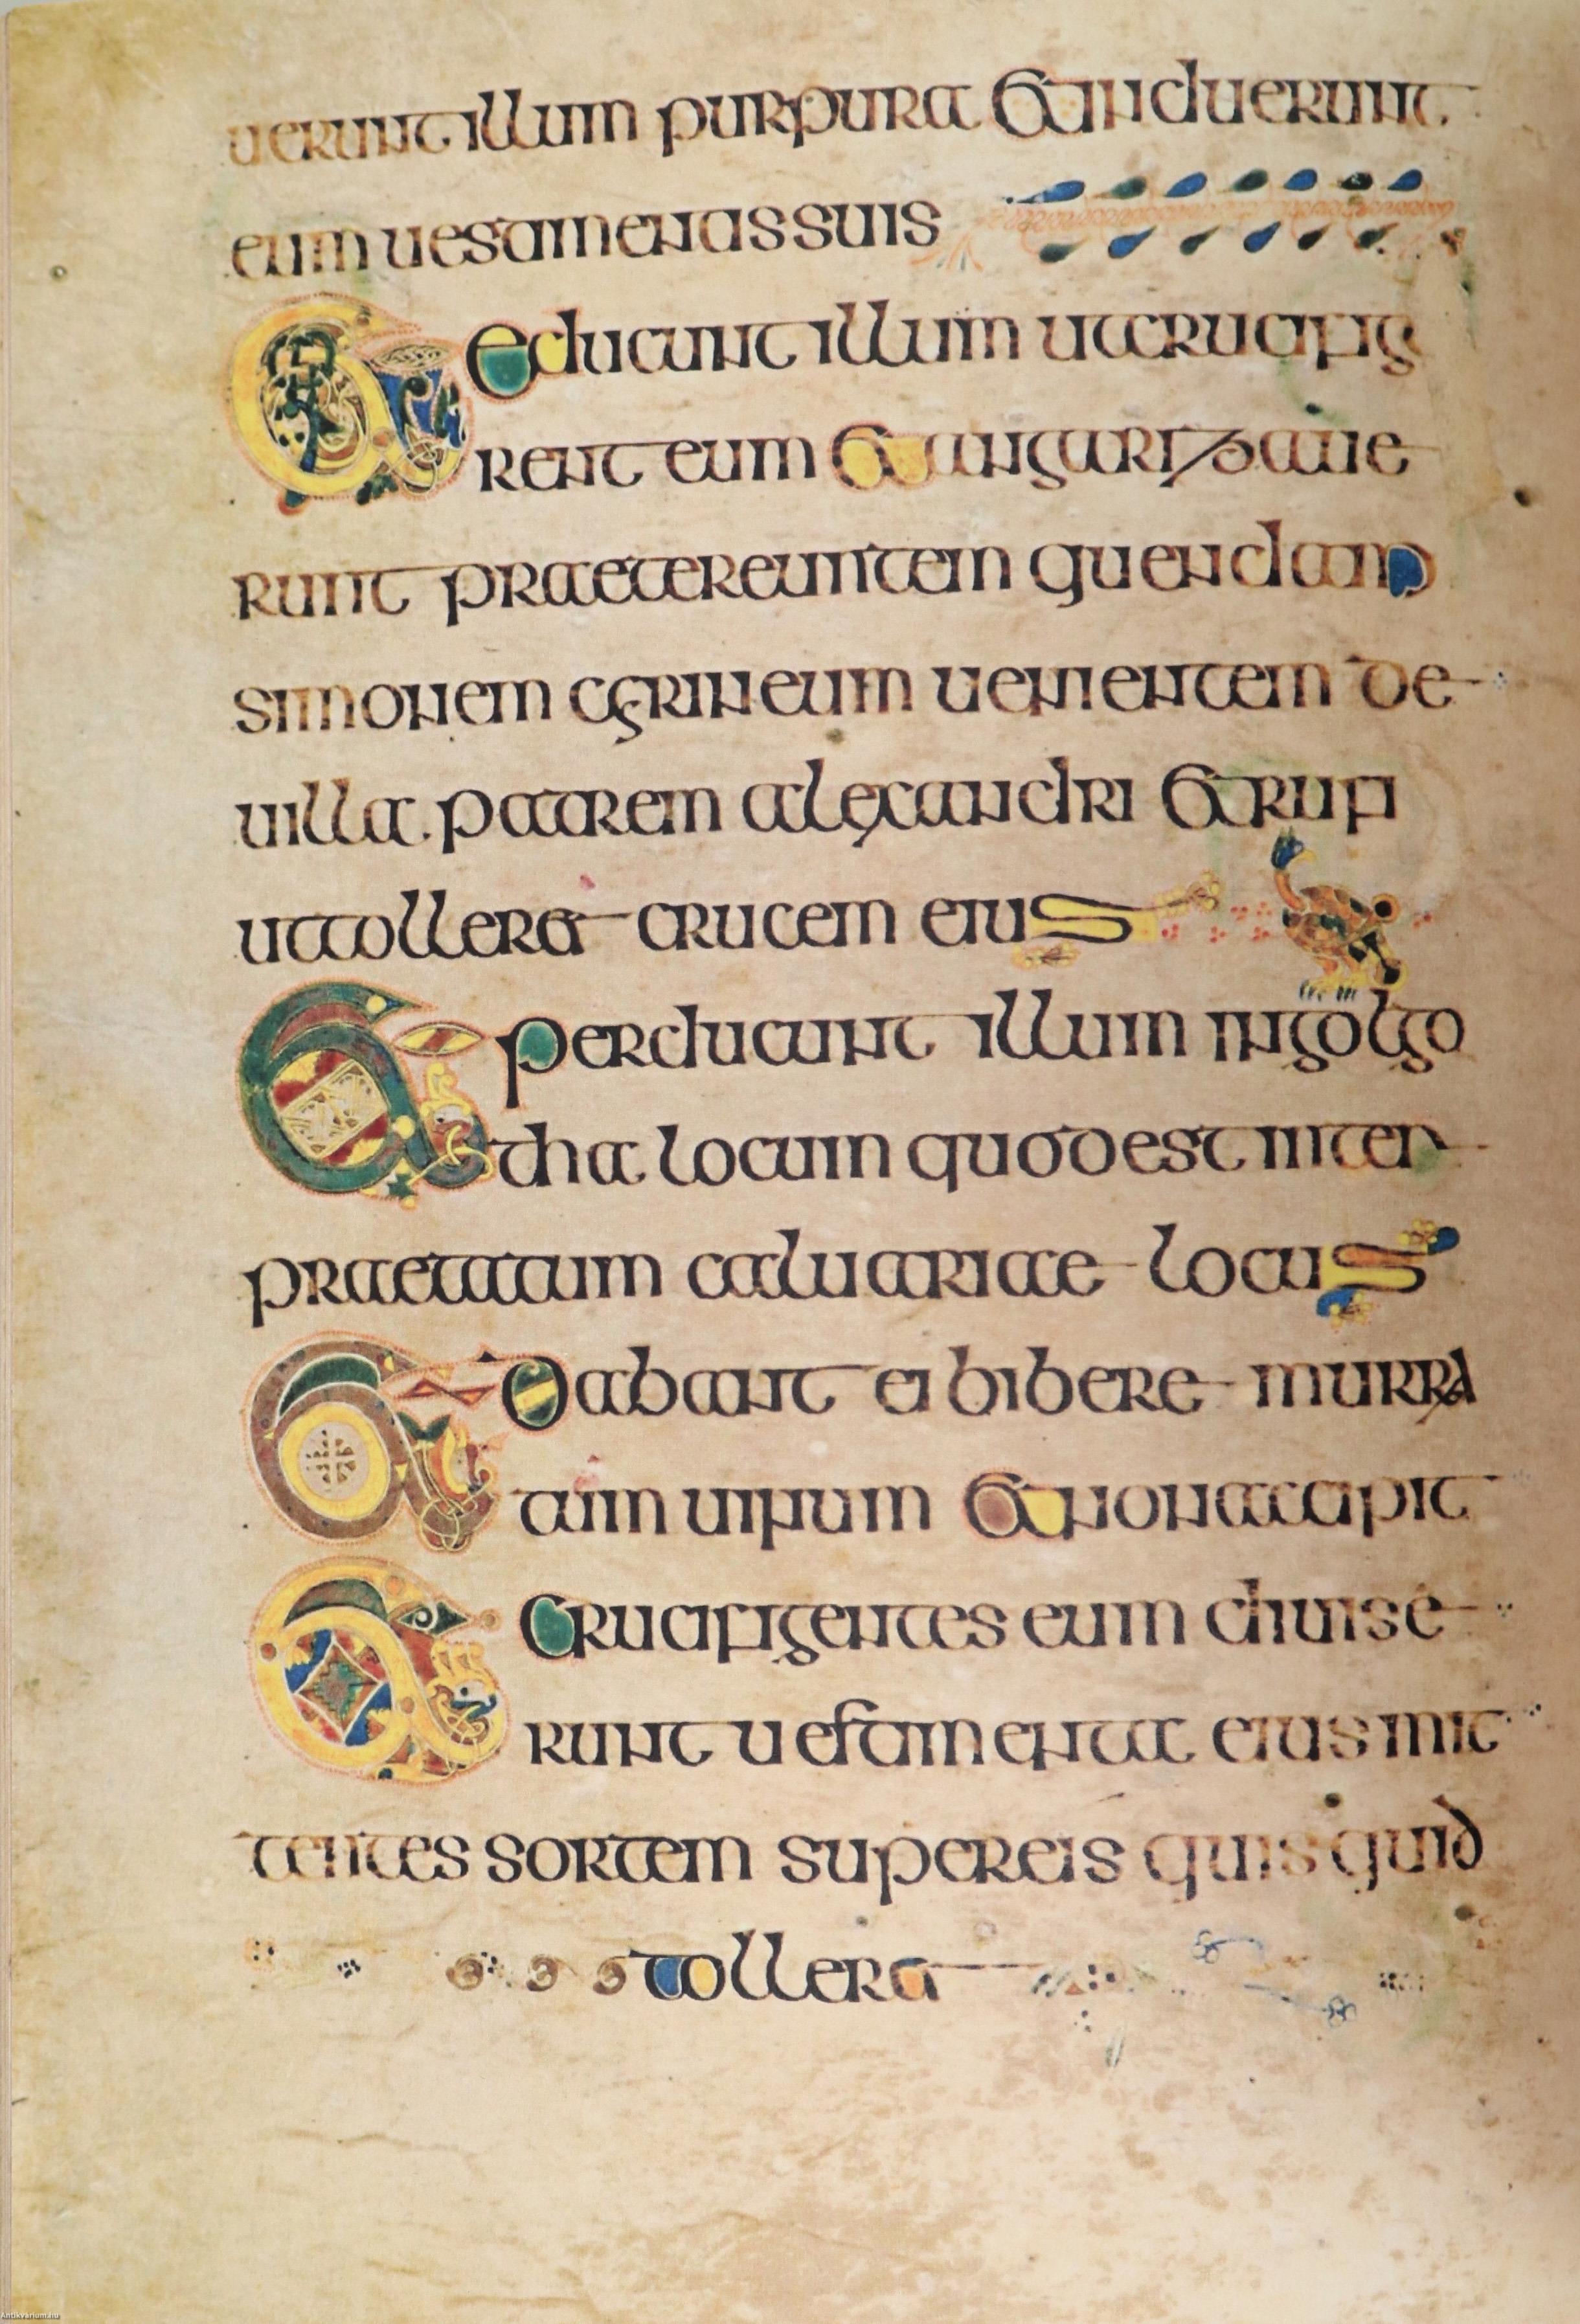 uerunt illum purpura et induerunt
eum uestimentis suis
Et educunt illum ut crucifig
rent eum et angarizaue
runt praetereuntem quendam
simonem cyrineum uenientem de
uilla patrem alexandri et rufi
ut tolleret crucem eius
Et perducunt illum in golgo
tha locum quod est inter
praetatum caluariae locus
Et dabant ei bibere murra
tum uinum et non accipit
Et crucifigentes eum diuise
runt uestimenta eius mit
tentes sortem super eis quis quid
tolleret
Antikvarium.hu